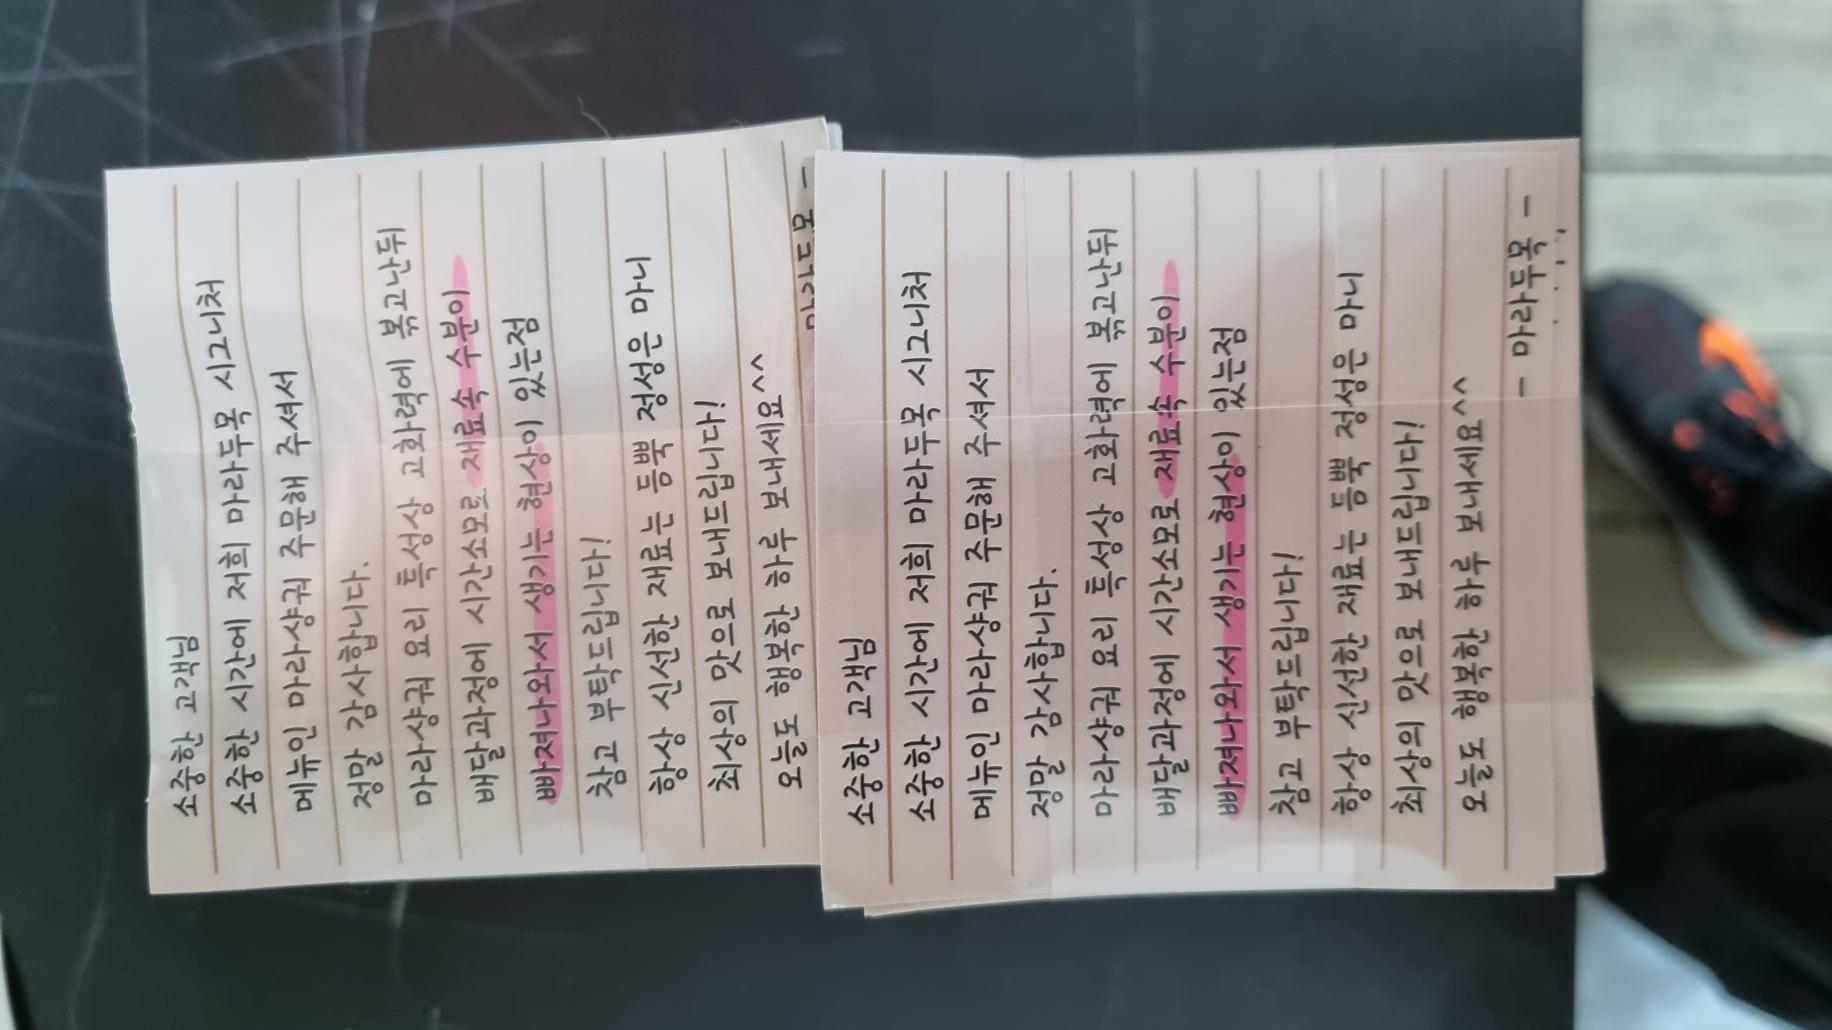 소중한 고객님
소중한 시간에 저희 마라두목 시그니처
메뉴인 마라샹궈 주문해 주셔서
정말 감사합니다.
마라샹궈 요리 특성상 고화력에 볶고난뒤
배달과정에 시간소모로 재료속 수분이
빠져나와서 생기는 현상이 있는점
참고 부탁드립니다!
항상 신선한 재료는 듬뿍 정성은 마니
최상의 맛으로 보내드립니다!
오늘도 행복한 하루 보내세요^^
마라두목 -
소중한 고객님
소중한 시간에 저희 마라두목 시그니처
메뉴인 마라샹궈 주문해 주셔서
정말 감사합니다.
마라샹궈 요리 특성상 고화력에 볶고난뒤
배달과정에 시간소모로 재료속 수분이
빠져나와서 생기는 현상이 있는점
참고 부탁드립니다!
항상 신선한 재료는 듬뿍 정성은 마니
최상의 맛으로 보내드립니다!
오늘도 행복한 하루 보내세요^^
- 마라두목 -